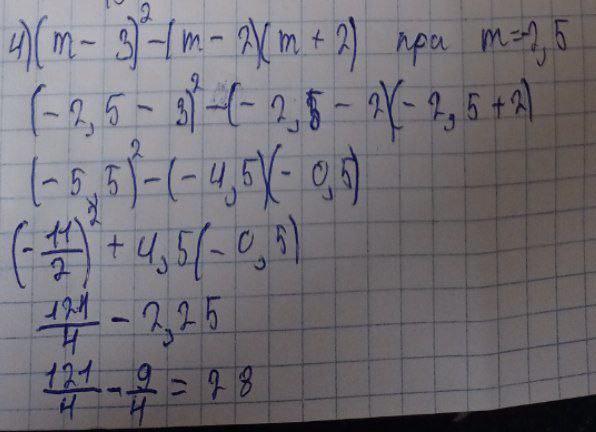 4) (m - 3)² - (m - 2)(m + 2) при m = -2,5
(-2,5 - 3)² - (-2,5 - 2)(-2,5 + 2)
(-5,5)² - (-4,5)(-0,5)
(-11/2)² + 4,5(-0,5)
121/4 - 2,25
121/4 - 9/4 = 28